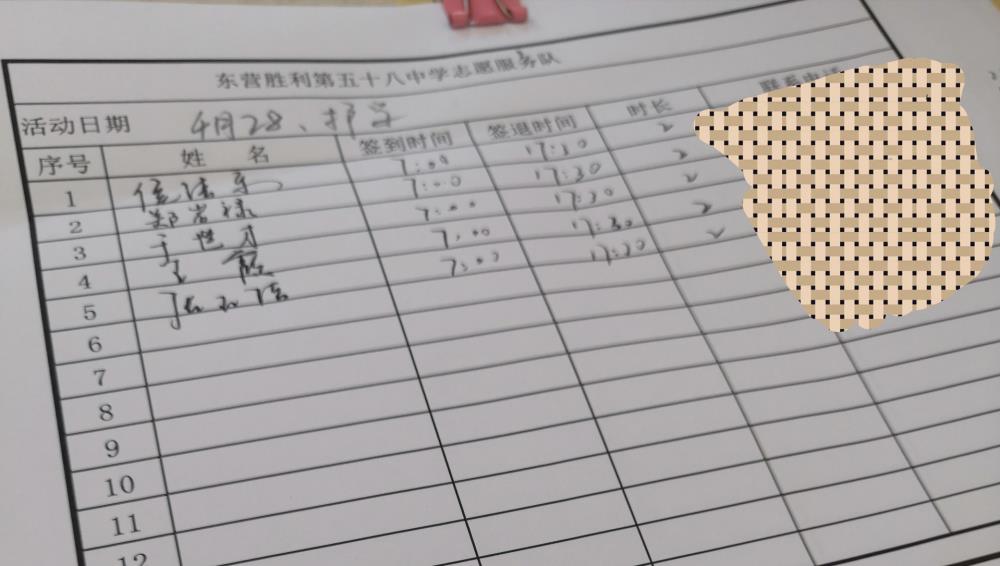 东营胜利第五十八中学志愿服务队
活动日期 4月28、护学
序号 姓 名 签到时间 签退时间 时长 联系电话
1 7:00 17:30 2
2 7:00 17:30 2
3 7:00 17:30 2
4 7:00 17:30 2
5 7:00 17:30 2
6
7
8
9
10
11
12